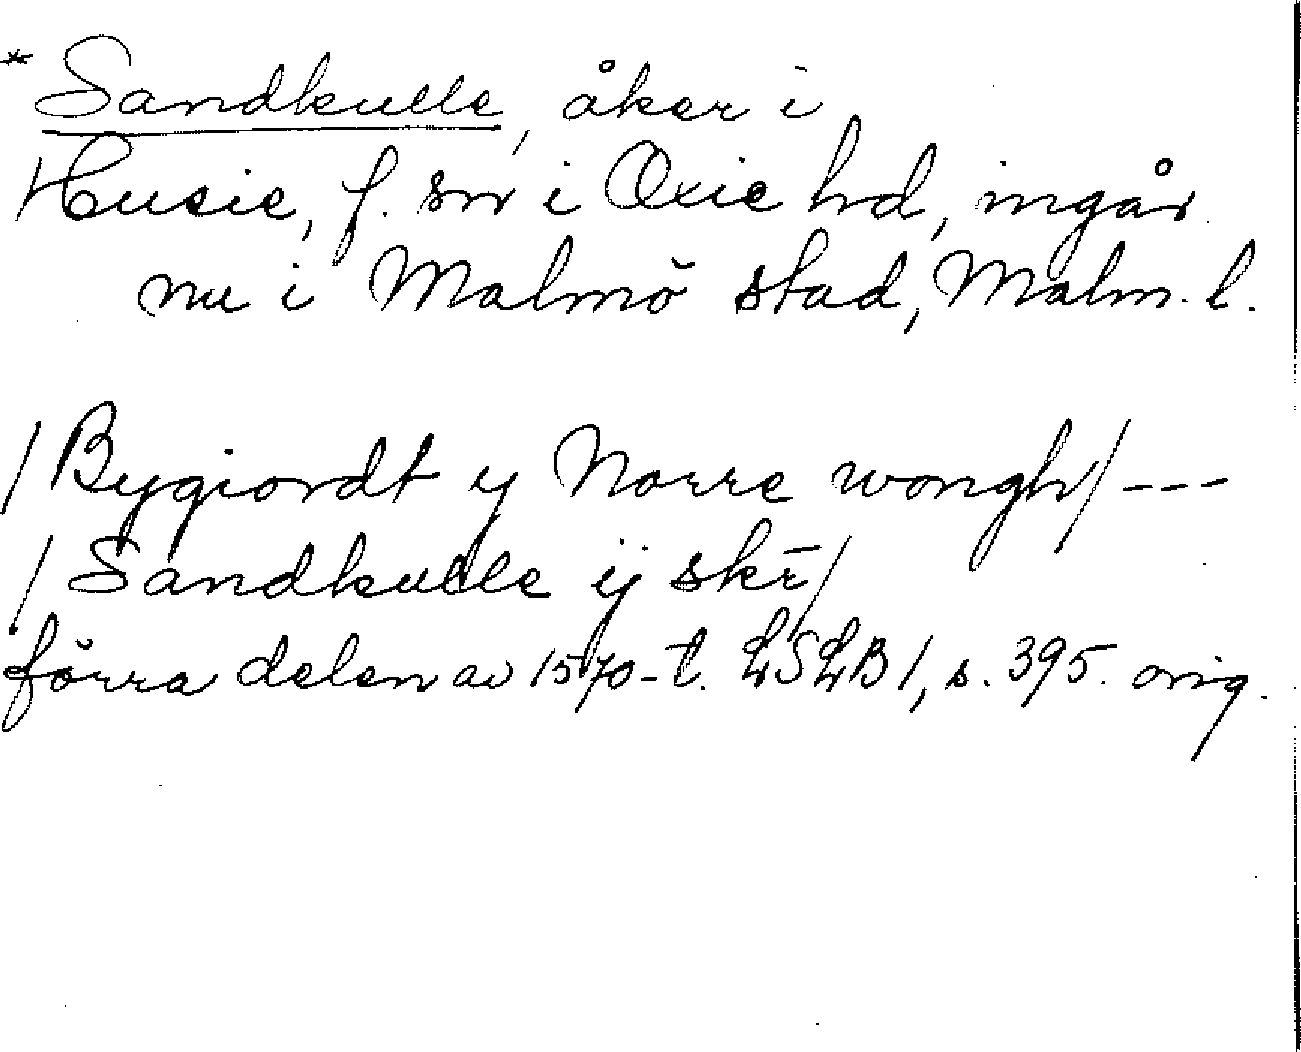 * Sandkulle, åker i
Husie, f. sn i Oxie hd, ingår
nu i Malmö stad, Malm. l.
/Bygiordt y Norre wongh/ ---
/Sandkulle ij skr̄/
förra delen av 1570-t. LSLB 1, s. 395. orig.